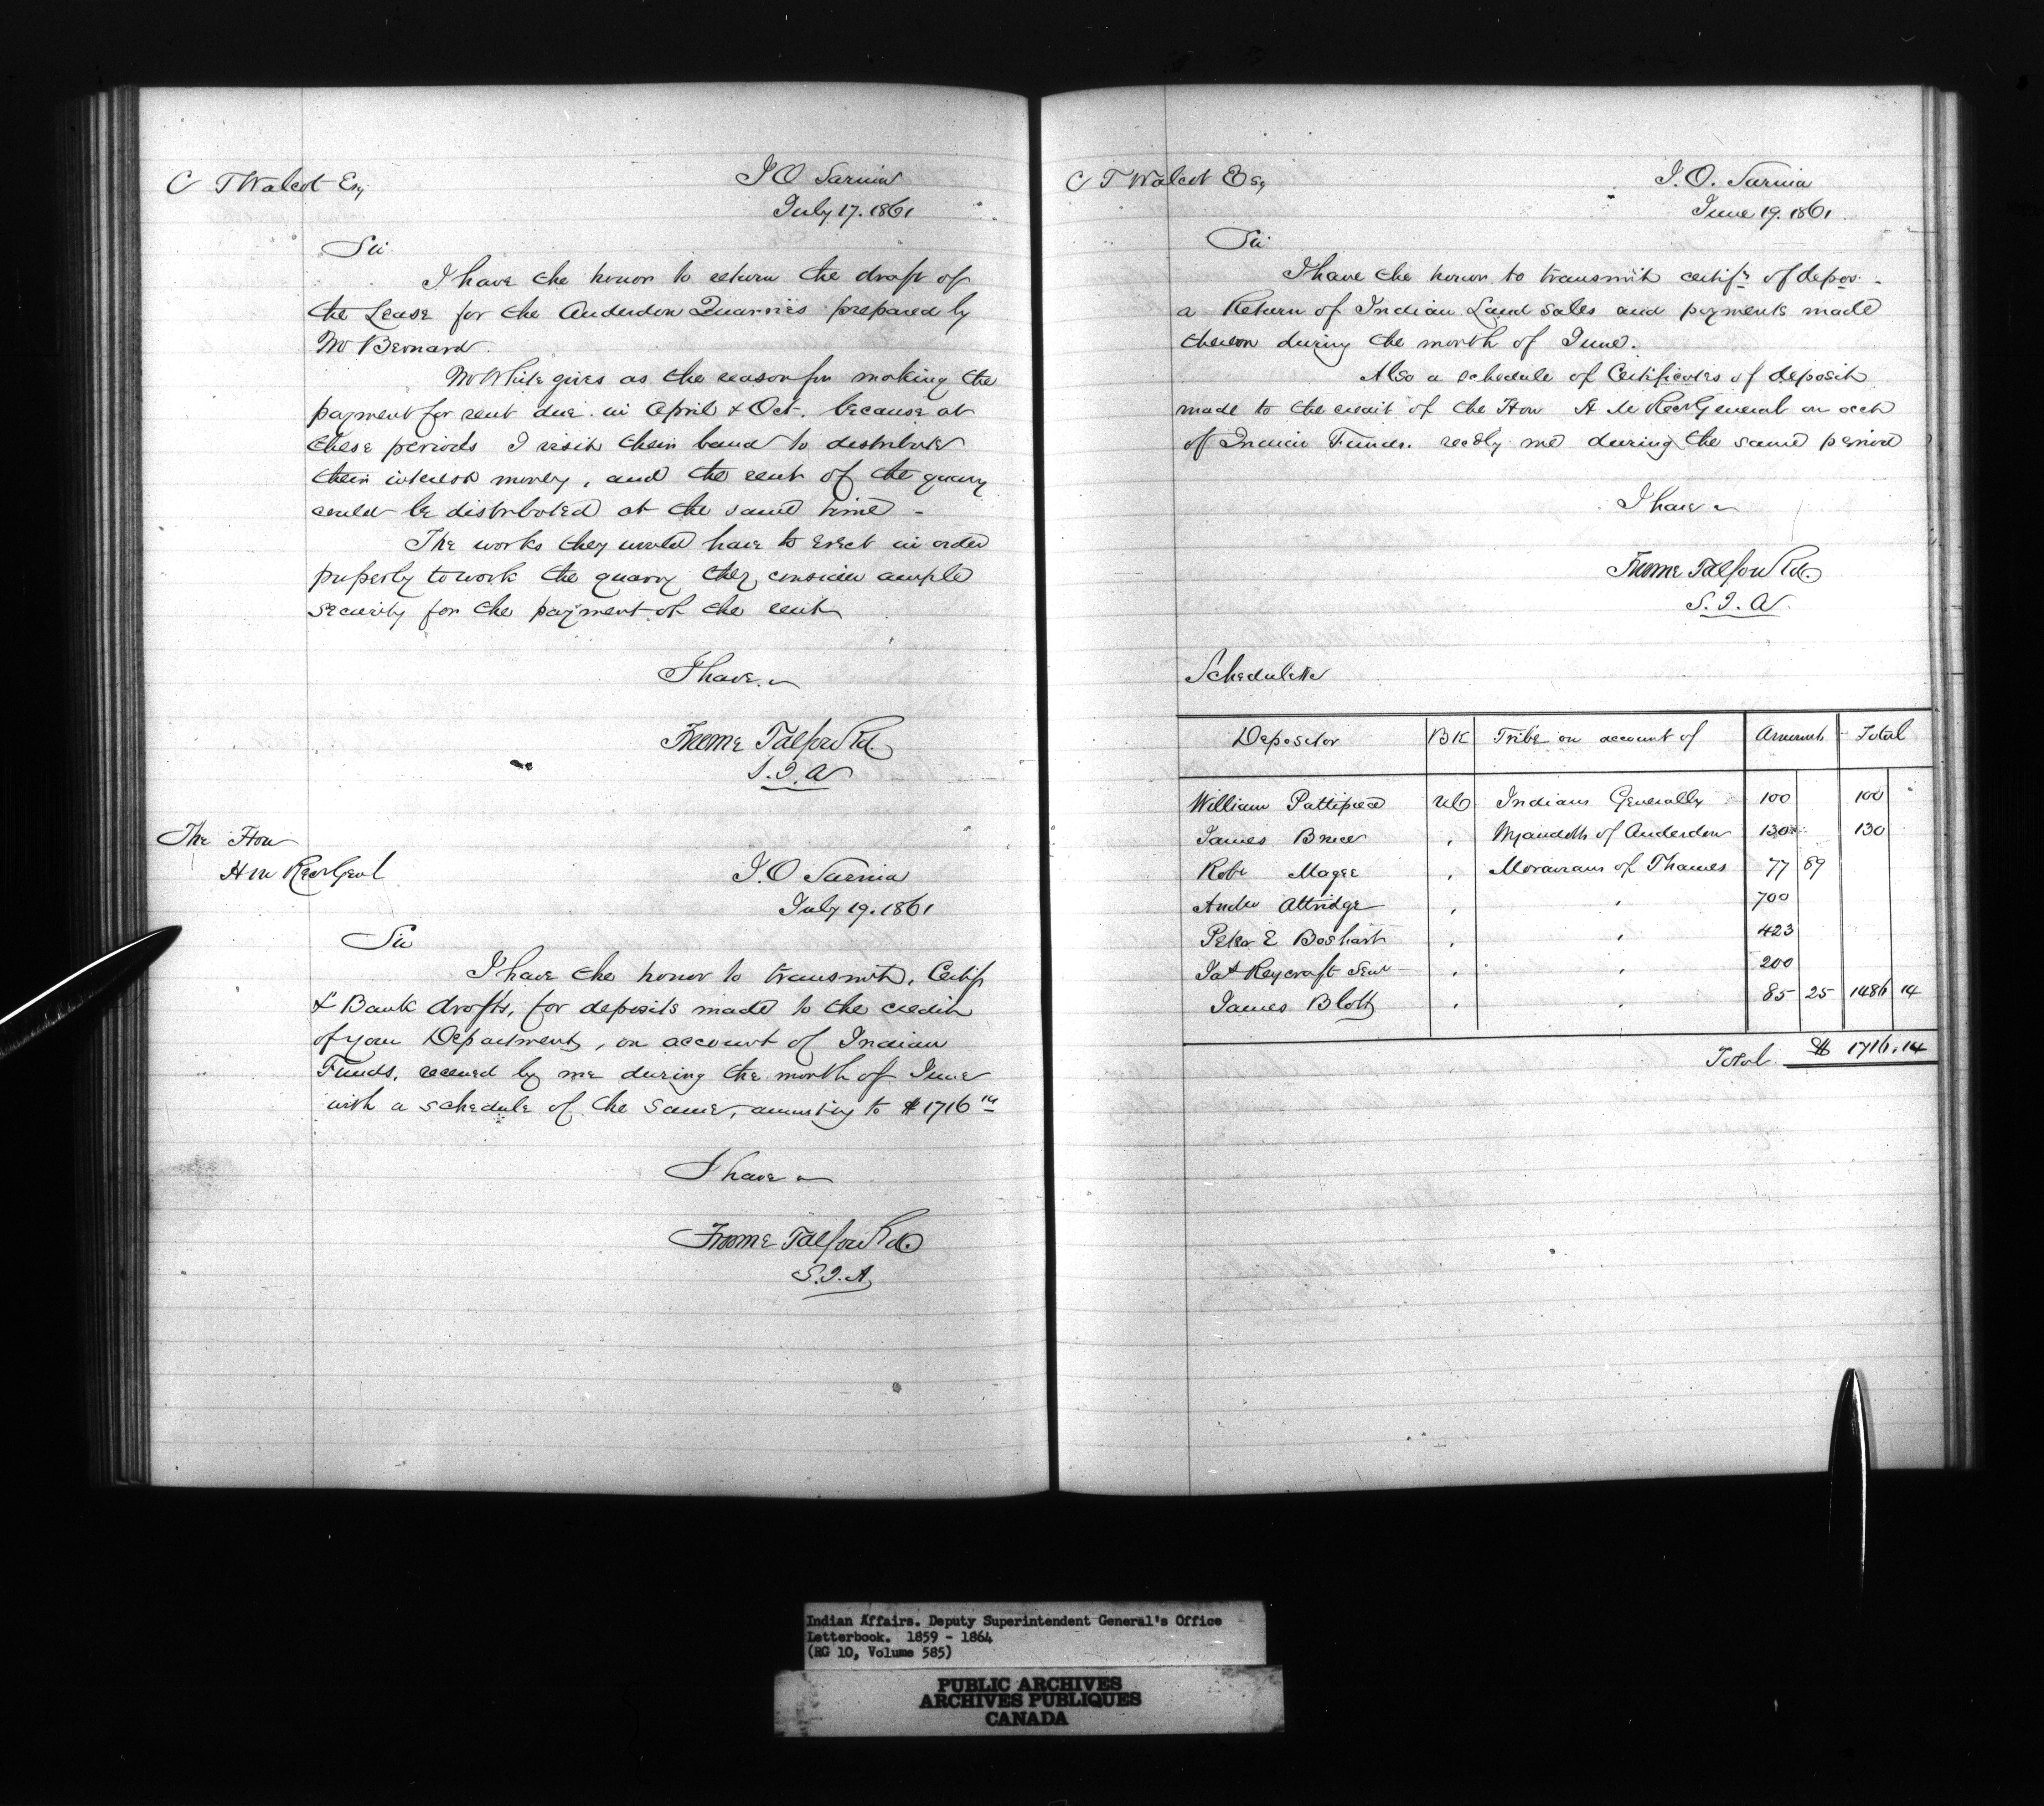 C T Walcot Esq
I O Sarnia
July 17. 1861
Sir
I have the honor to return the draft of
the Lease for the Anderdon Quarries prepared by
Mr Bernard.
Mr White gives as the reason for making the
payment for rent due in April & Oct. because at
these periods I visit their band to distribute
their interest money, and the rent of the quarry
could be distributed at the same time -
The works they would have to erect in order
properly to work the quarry they consider ample
security for the payment of the rent
I have
Froome Talfourd.
S. I. A
The Hon
H M Recr Genl
I. O Sarnia
July 19. 1861
Sir
I have the honor to transmit, Certif
& Bank drafts, for deposits made to the credit
of your Department, on account of Indian
Funds, received by me during the month of June
with a schedule of the same, amounting to $ 1716 14
I have
Froome Talfourd
S. I. A
C T Walcot Esq
I. O. Sarnia
June 19. 1861
Sir
I have the honor to transmit certifs of depos -
a Return of Indian Land Sales and payments made
thereon during the month of June.
Also a schedule of Certificates of deposit
made to the credit of the Hon H M Recr General on acct
of Indian Funds. recd by me during the same period
I have
Froome Talfourd.
S. I. A
Schedule
Depositor BK Tribe on account of Amount Total
William Pattipiece UC Indians Generally 100 100
James Bruce , Wyandotts of Anderdon 130 130
Robt Magee , Moravians of Thames 77 89
Andw Attridge , , 700
Peter E Boshart , , 423
Jas Reycraft Senr , , 200
James Blott , , 85 25 1486 14
Total $ 1716.14
Indian Affairs. Deputy Superintendent General's Office
Letterbook. 1859 - 1864
(RG 10, Volume 585)
PUBLIC ARCHIVES
ARCHIVES PUBLIQUES
CANADA